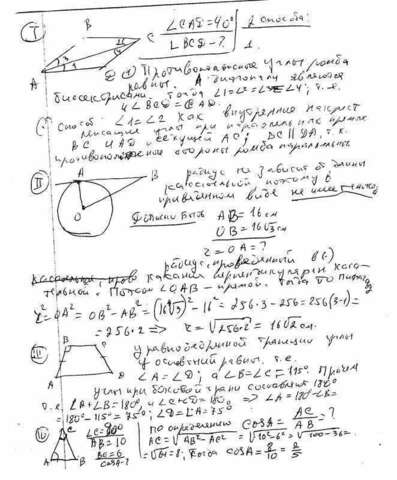 I
B
C
A
∠CAD=40°
∠BCD-?
2 способа:
1.
① Противоположные углы ромба
равны. А диагонали являются
биссектрисами. Тогда ∠1=∠2=∠3=∠4, т.е.
∠BCD = ∠BAD.
способ ∠1=∠2 как внутренние накрест
лежащие углы при параллельных прямых
BC и AD и секущей AC; BC || DA, т.к.
противоположные стороны ромба параллельны.
II
A
B
O
радиус не зависит от длины
касательной поэтому в
приведенном виде не имеет
Должно быть AB=16см
OB=16√3см
r=OA=?
радиус, проведенный в (·)
касания перпендикулярен каса-
тельной. Поэтому ∠OAB-прямой. Тогда по
r²=OA²=OB²-AB²=(16√3)²-16²=256·3-256=256(3-1)=
=256·2 ⇒ r=√256·2=16√2см.
B
A
D
у равнобедренной трапеции углы
у основания равны, т.е.
∠A=∠D; а ∠B=∠C=115°. Причем
углы при боковой грани составляют 180°
т.е. ∠A+∠B=180°, и ∠C+∠D=180° ⇒ ∠A=180°-∠B=
=180°-115°=75°; ∠D=∠A=75°
C
A
B
∠C=90°
AB=10
BC=6
cosA-?
по определению cosA=AC/AB=?
AC=√AB²-AC²=√10²-6²=√100-36=
=√64=8; тогда cosA=8/10=